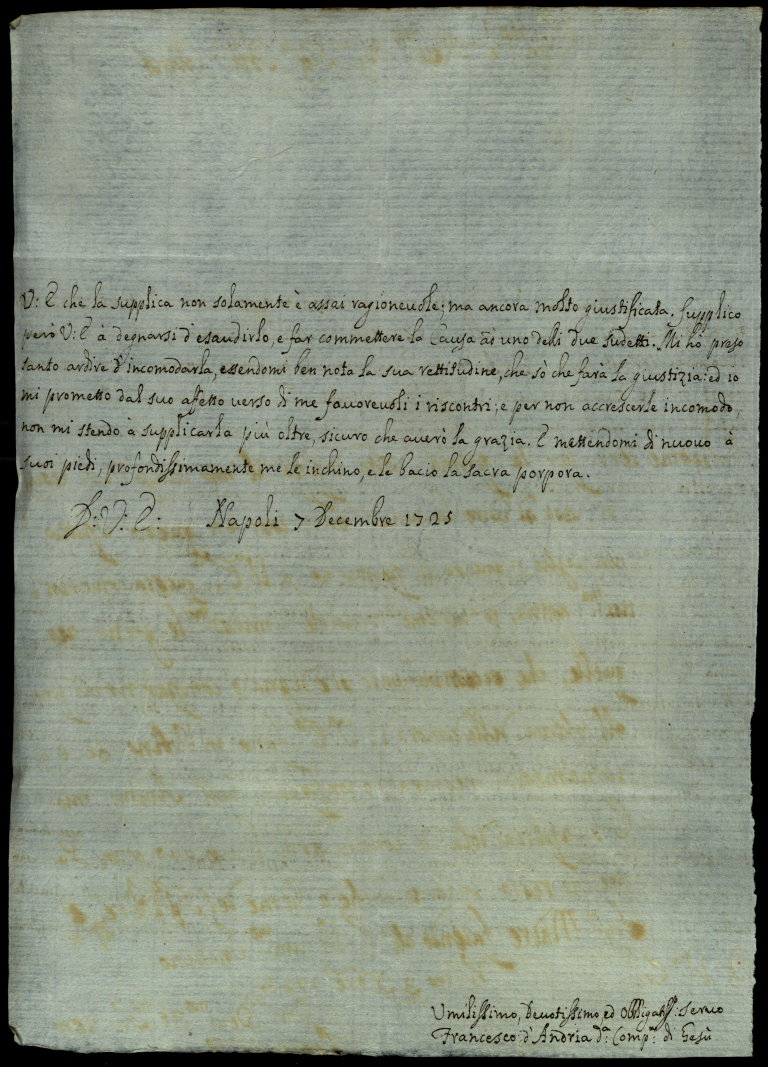 V: E che la supplica non solamente è assai ragioneuole; ma ancora molto giustificata. Supplico
però V: E à degnarsi d'esaudirlo, e far commettere la Causa ad uno delli due sudetti. Mi hò preso
tanto ardire d'incomodarla, essendomi ben nota la sua rettitudine, che sò che farà la giustizia: ed io
mi prometto dal suo affetto verso di me fauoreuoli i riscontri; e per non accrescerle incomodo,
non mi stendo à supplicarla più oltre, sicuro che auerò la grazia. E mettendomi di nuouo à
suoi piedi, profondissimamente me le inchino, e le bacio la sacra porpora.
D: V: E: Napoli 7 Decembre 1725
Umilissimo, Deuotissimo, ed Obbligatss: seruo
Francesco d'Andria da Compa: di Gesù